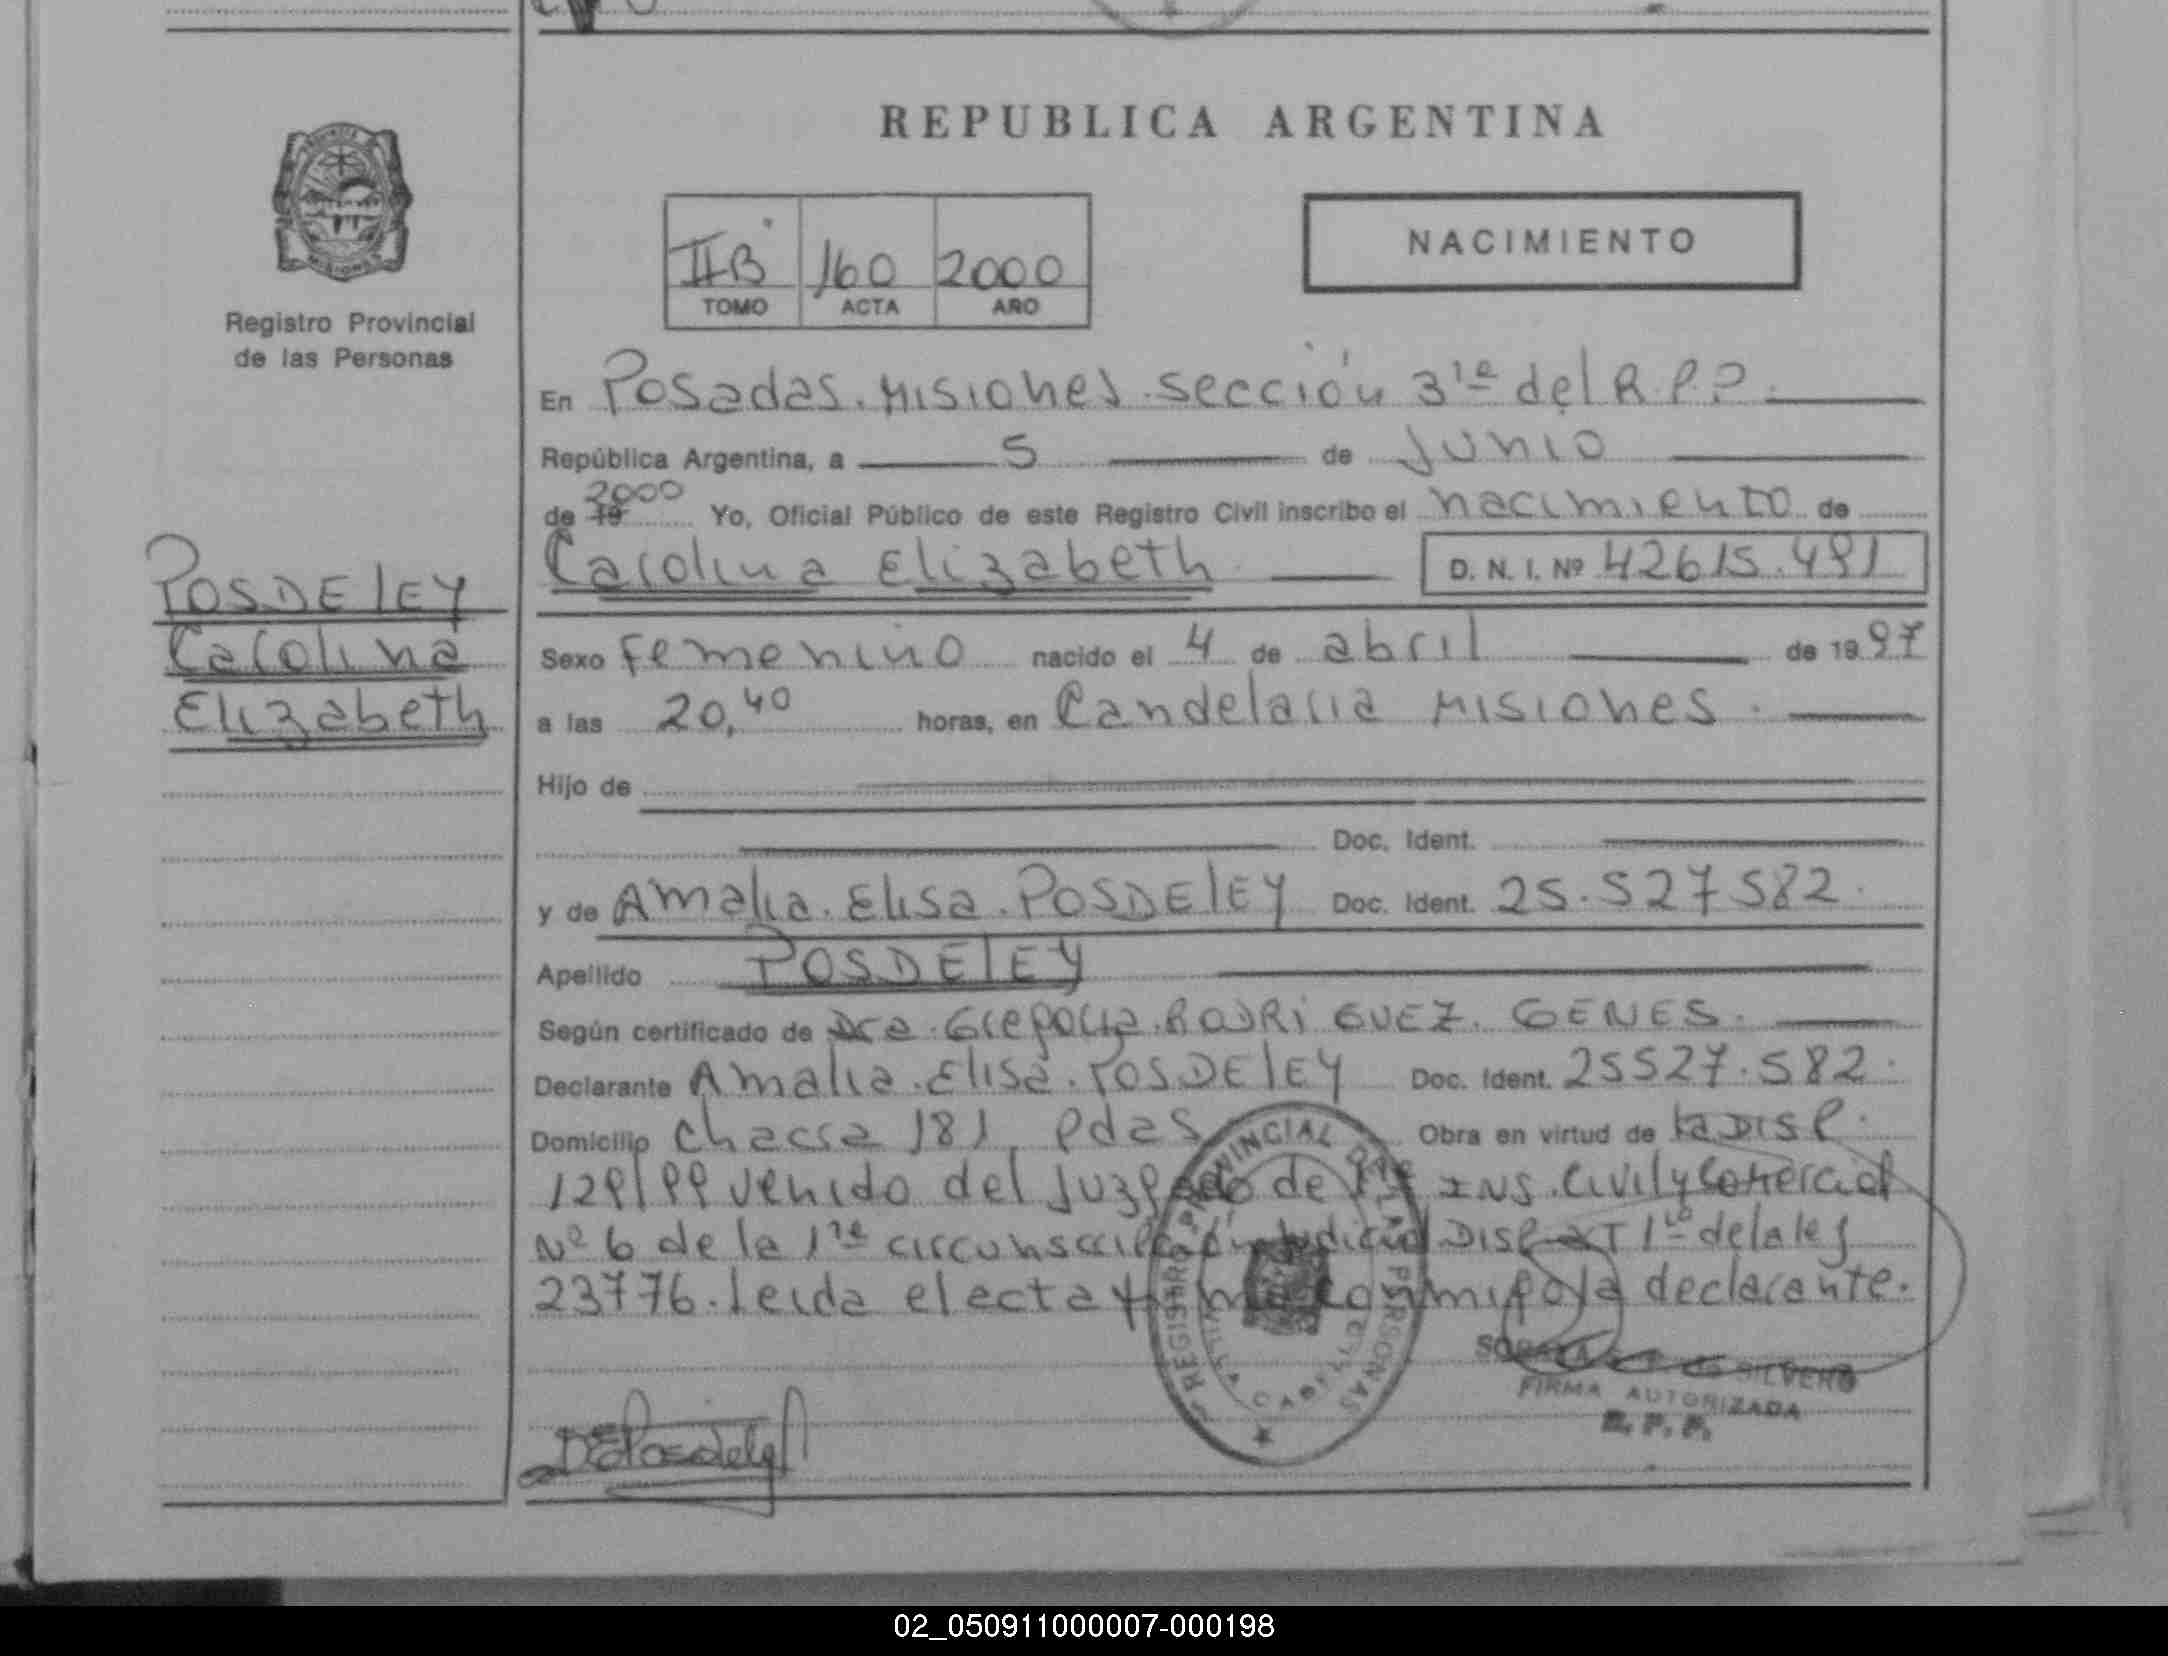 REPUBLICA ARGENTINA
PROVINCIA
MISIONES
Registro Provincial
de las Personas
IIB 160 2000
TOMO ACTA AÑO
NACIMIENTO
En Posadas. Misiones. sección 3ra del R.P.P.
República Argentina, a 5 de Junio
2000
de 19 Yo, Oficial Público de este Registro Civil inscribo el nacimiento de
Carolina Elizabeth D. N. I. Nº 42615.491
POSDELEY
Carolina
Elizabeth
Sexo Femenino nacido el 4 de abril de 1997
a las 20,40 horas, en Candelaria Misiones.
Hijo de
Doc. Ident.
y de Amalia. Elisa. POSDELEY Doc. Ident. 25.527582.
Apellido POSDELEY
Según certificado de Dra. Gregoria. RODRIGUEZ. GENES.
Declarante Amalia. Elisa. POSDELEY Doc. Ident. 25527.582.
Domicilio Chacra 181, Pdas Obra en virtud de la DISP.
129/99 venido del Juzgado de 1ra INS. Civil y Comercial
Nº 6 de la 1ra circunscripción Judicial DISP. ART 1ro de la ley
23776. Leida el acta firma conmigo la declarante.
REGISTRO PROVINCIAL DE LAS PERSONAS
SILVERO
FIRMA AUTORIZADA
R. P. P.
02_050911000007-000198